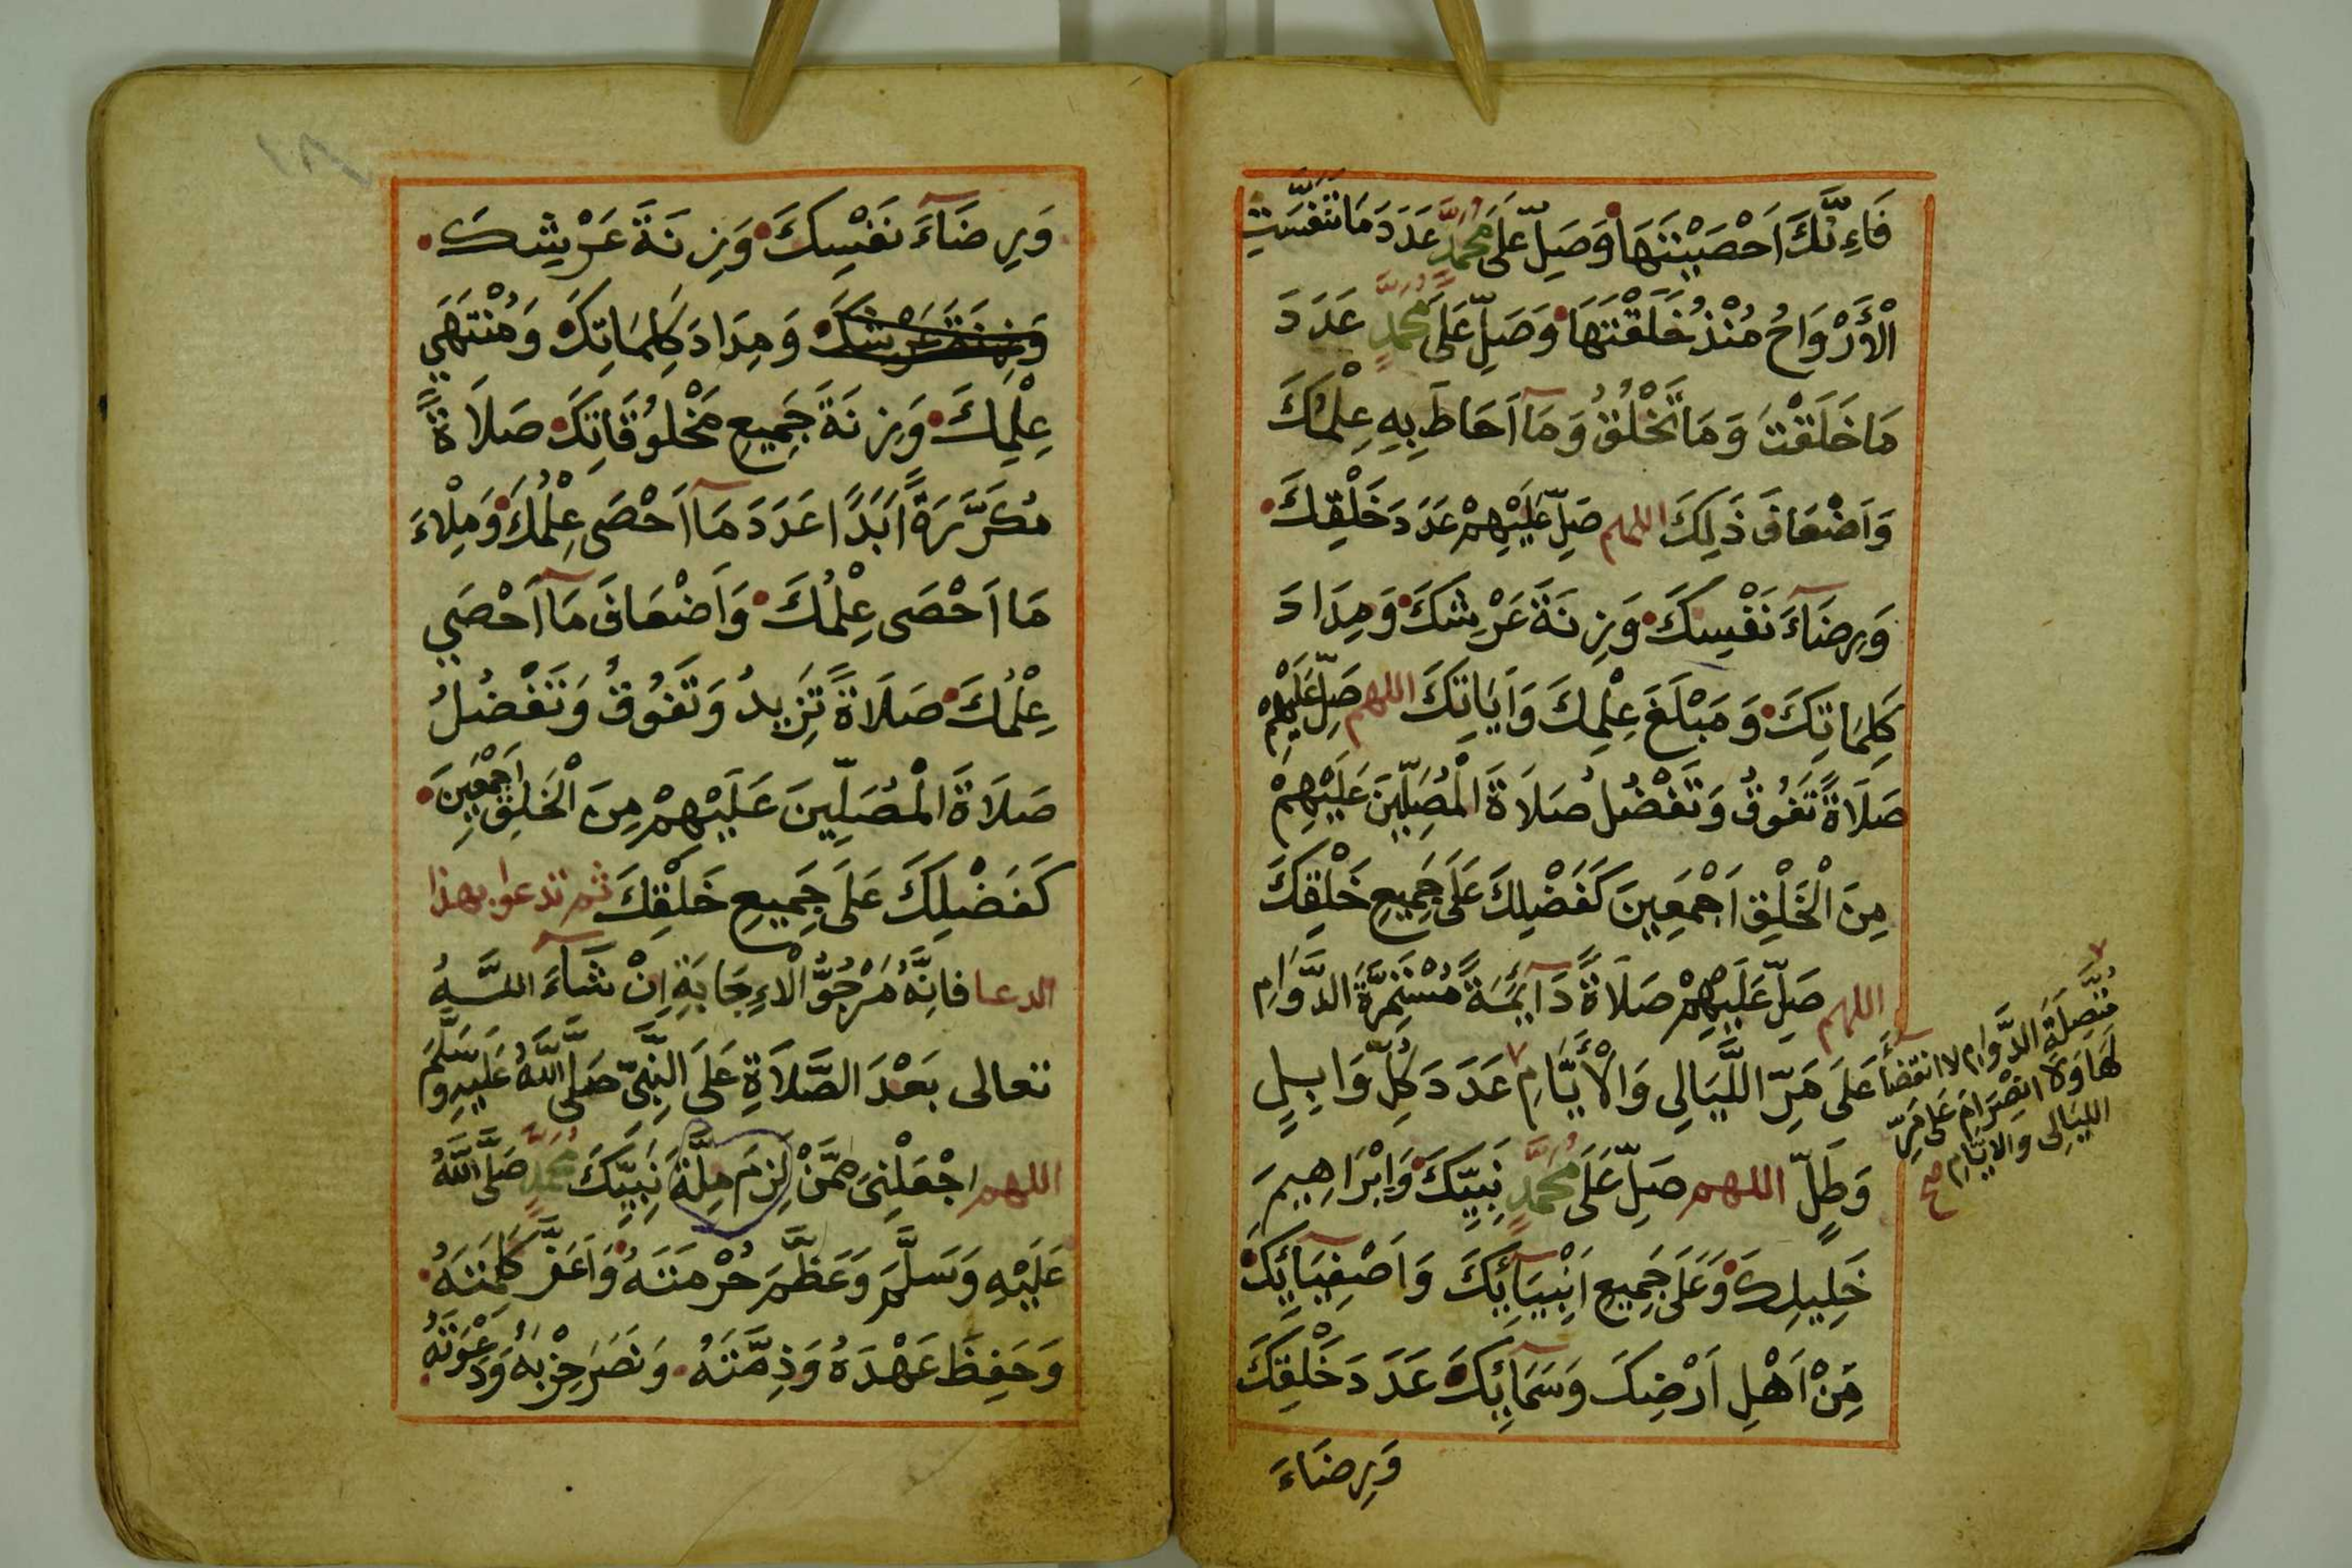 فَاِنَّكَ اَحْصَيْتَهَا وَصَلِّ عَلَى مُحَمَّدٍ عَدَدَ مَا تَنَفَّسَتِ
الْأَرْوَاحُ مُنْذُ خَلَقْتَهَا وَصَلِّ عَلَى مُحَمَّدٍ عَدَدَ
مَا خَلَقْتَ وَمَا تَخْلُقُ وَمَآ اَحَاطَ بِهِ عِلْمُكَ
وَاَضْعَافَ ذَلِكَ اللهم صَلِّ عَلَيْهِمْ عَدَدَ خَلْقِكَ
وَرِضَآءَ نَفْسِكَ وَزِنَةَ عَرْشِكَ وَمِدَادَ
كَلِمَاتِكَ وَمَبْلَغَ عِلْمِكَ وَاَيَاتِكَ اللهم صَلِّ عَلَيْهِمْ
صَلَاةً تَفُوقُ وَتَفْضُلُ صَلَاةَ الْمُصَلِّيْنَ عَلَيْهِمْ
مِنَ الْخَلْقِ اَجْمَعِينَ كَفَضْلِكَ عَلَى جَمِيعِ خَلْقِكَ
اللهم صَلِّ عَلَيْهِمْ صَلَاةً دَآئِمَةً مُسْتَمِرَّةَ الدَّوَامِ
عَلَى مَرِّ اللَّيَالِي وَالْأَيَّامِ عَدَدَ كُلِّ وَابِلٍ
وَطَلٍّ اللهم صَلِّ عَلَى مُحَمَّدٍ نَبِيِّكَ وَاِبْرَاهِيمَ
خَلِيلِكَ وَعَلَى جَمِيعِ اَنْبِيَآئِكَ وَاَصْفِيَآئِكَ
مِنْ اَهْلِ اَرْضِكَ وَسَمَآئِكَ عَدَدَ خَلْقِكَ
وَرِضَاءَ
مُتَّصِلَةَ الدَّوَامِ لا انْقِضَآءَ
لَهَا وَلَا انْصِرَامَ عَلَى مَرِّ
الليَالِى والايَّامِ صح
وَرِضَآءَ نَفْسِكَ وَزِنَةَ عَرْشِكَ
وَزِنَةَ عَرْشِكَ وَمِدَادَ كَلِمَاتِكَ وَمُنْتَهَي
عِلْمِكَ وَزِنَةَ جَمِيعِ مَخْلُوقَاتِكَ صَلَاةً
مُكَرَّرَةً اَبَدًا عَدَدَ مَآ اَحْصَى عِلْمُكَ وَمِلْاءَ
مَا اَحْصَى عِلْمُكَ وَاَضْعَافَ مَآ اَحْصَي
عِلْمُكَ صَلَاةً تَزِيدُ وَتَفُوقُ وَتَفْضُلُ
صَلَاةَ الْمُصَلِّينَ عَلَيْهِمْ مِنَ الْخَلْقِ اَجْمَعِينَ
كَفَضْلِكَ عَلَى جَمِيعِ خَلْقِكَ ثم تدعوا بهذا
الدعا فَاِنَّهُ مَرْجُوُّ الْاءِجَابَةِ اِنْ شَآءَ اللَّهُ
تعالى بَعْدَ الصَّلَاةِ عَلَى النَّبِيِّ صَلَّى اللَّهُ عَلَيهِ وَسَلَّمَ
اللهم اجْعَلْنِي مِمَّنْ لَزِمَ مِلَّةَ نَبِيِّكَ مُحَمَّدٍ صَلَّى اللَّهُ
عَلَيْهِ وَسَلَّمَ وَعَظَّمَ حُرْمَتَهُ وَاَعَزَّ كَلِمَتَهُ
وَحَفِظَ عَهْدَهُ وَذِمَّتَهُ وَنَصَرَ حِزْبَهُ وَدَعْوَتَهُ